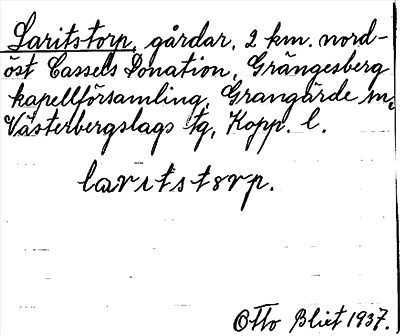 Laritstorp, gårdar, 2 km. nord-
öst Cassels Donation, Grängesberg
kapellförsamling, Grangärde sn,
Västerbergslags tg, Kopp. l.
laritstorp.
Otto Blixt 1937.